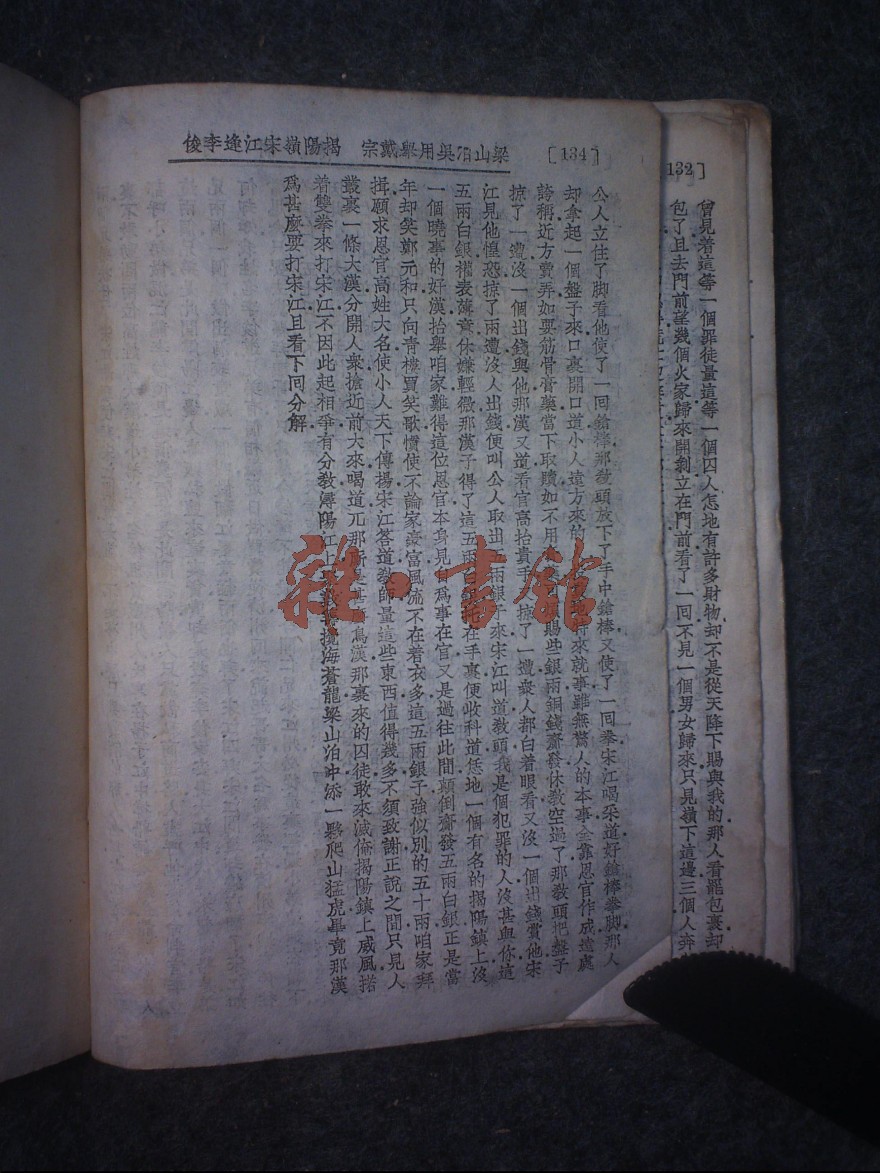 [134]
梁山泊吳用舉戴宗　揭陽嶺宋江逢李俊
公人立住了脚看他使了一回鎗棒那教頭放下了手中鎗棒又使了一回拳宋江喝采道好鎗棒拳脚那人
却拿起一個盤子來口裏開口道小人遠方來的特來就事雖無驚人的本事全靠恩官作成遠處
誇稱近方賣弄如要筋骨膏藥當下取贖如不用賜些銀兩銅錢齎發休教空過了那教頭把盤子
掠了一遭沒一個出錢與他那漢又道看官高抬貴手掠了一遭衆人都白着眼看又沒一個出錢賞他宋
江見他惶恐掠了兩遭沒人出錢便叫公人取出五兩銀子來宋江叫道教頭我是個犯罪的人沒甚與你這
五兩白銀權表薄意休嫌輕微那漢子得了這五兩白在手裏便收科道恁地一個有名的揭陽鎮上沒
一個曉事的好漢抬舉咱家難得這位恩官本身見自爲事在官又是過往此間顛倒齎發五兩白銀正是當
年却笑鄭元和只向青樓買笑歌慣使不論家豪富風流不在着衣多這五兩銀子強似別的五十兩咱家拜
揖願求恩官高姓大名使小人天下傳揚宋江答道教師量這些東西值得幾多不須致謝正說之間只見人
叢裏一條大漢分開人衆搶近前大來喝道兀那厮是甚麼鳥漢那裏來的囚徒敢來滅俺揭陽鎮上威風搭
着雙拳來打宋江不因此起相爭有分教潯陽江上攪海蒼龍梁山泊中添一夥爬山猛虎畢竟那漢
爲甚麼要打宋江且看下回分解
132]
曾見着這等一個罪徒量這等一個囚人怎地有許多財物却不是從天降下賜與我的那人看罷包裹却
包了且去門前望幾個火家歸來開剝立在門前看了一回不見一個男女歸來只見嶺下這邊三個人奔
雜·書館